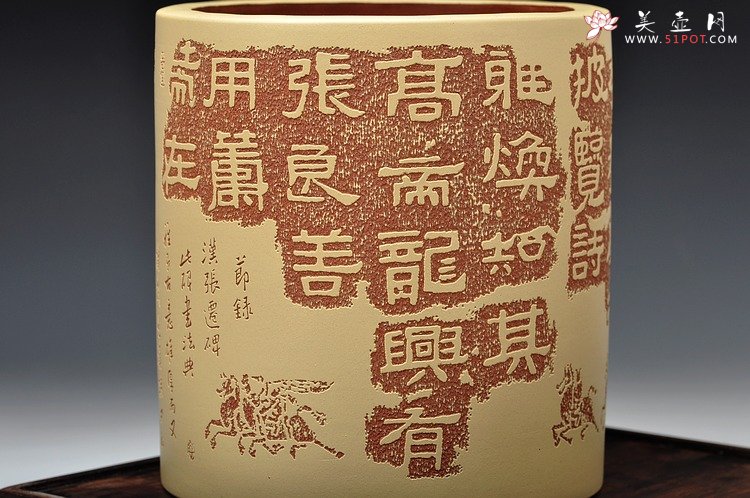 美壶网
WWW.51POT.COM
披覽詩
雅煥知其
高帝龍興有
張良善
用籌
策在
節錄
漢張遷碑
此碑書法典